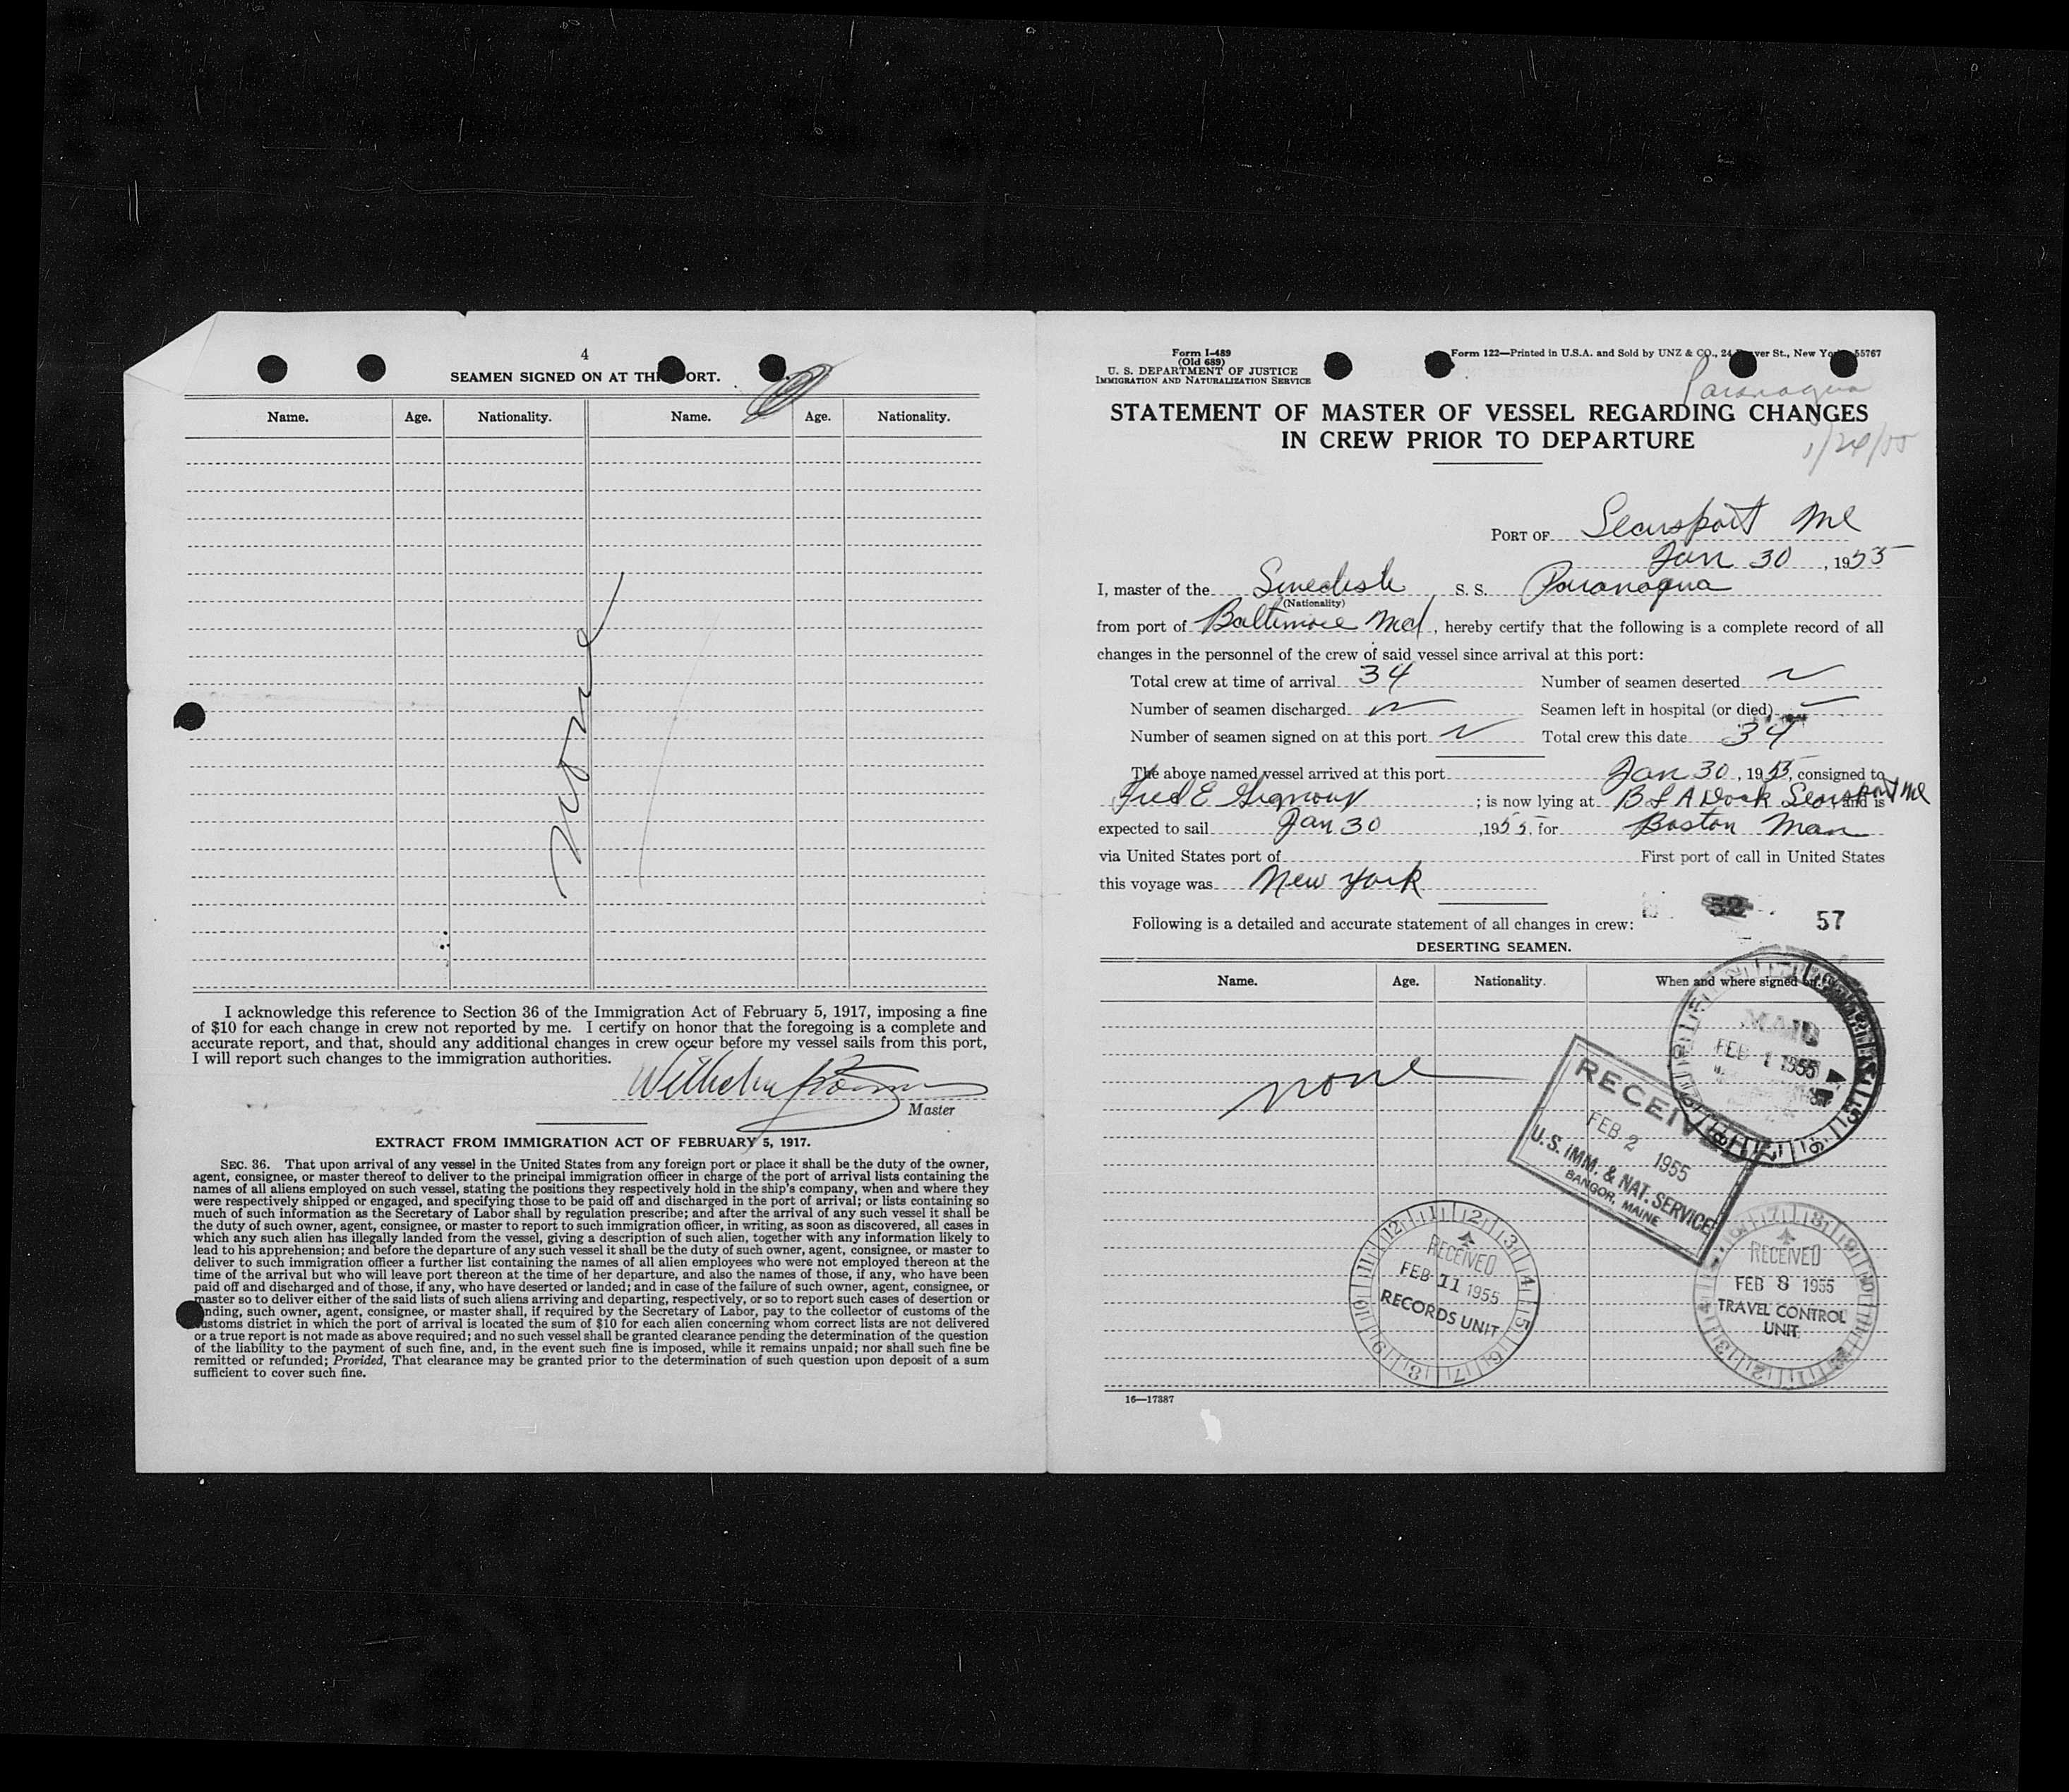 4
SEAMEN SIGNED ON AT THIS PORT.
Name. Age. Nationality. Name. Age. Nationality.
None
I acknowledge this reference to Section 36 of the Immigration Act of February 5, 1917, imposing a fine
of $10 for each change in crew not reported by me. I certify on honor that the foregoing is a complete and
accurate report, and that, should any additional changes in crew occur before my vessel sails from this port,
I will report such changes to the immigration authorities.
Wilhelm
Master
EXTRACT FROM IMMIGRATION ACT OF FEBRUARY 5, 1917.
SEC. 36. That upon arrival of any vessel in the United States from any foreign port or place it shall be the duty of the owner,
agent, consignee, or master thereof to deliver to the principal immigration officer in charge of the port of arrival lists containing the
names of all aliens employed on such vessel, stating the positions they respectively hold in the ship's company, when and where they
were respectively shipped or engaged, and specifying those to be paid off and discharged in the port of arrival; or lists containing so
much of such information as the Secretary of Labor shall by regulation prescribe; and after the arrival of any such vessel it shall be
the duty of such owner, agent, consignee, or master to report to such immigration officer, in writing, as soon as discovered, all cases in
which any such alien has illegally landed from the vessel, giving a description of such alien, together with any information likely to
lead to his apprehension; and before the departure of any such vessel it shall be the duty of such owner, agent, consignee, or master to
deliver to such immigration officer a further list containing the names of all alien employees who were not employed thereon at the
time of the arrival but who will leave port thereon at the time of her departure, and also the names of those, if any, who have been
paid off and discharged and of those, if any, who have deserted or landed; and in case of the failure of such owner, agent, consignee, or
master so to deliver either of the said lists of such aliens arriving and departing, respectively, or so to report such cases of desertion or
landing, such owner, agent, consignee, or master shall, if required by the Secretary of Labor, pay to the collector of customs of the
customs district in which the port of arrival is located the sum of $10 for each alien concerning whom correct lists are not delivered
or a true report is not made as above required; and no such vessel shall be granted clearance pending the determination of the question
of the liability to the payment of such fine, and, in the event such fine is imposed, while it remains unpaid; nor shall such fine be
remitted or refunded; Provided, That clearance may be granted prior to the determination of such question upon deposit of a sum
sufficient to cover such fine.
Form I-489
(Old 689)
U. S. DEPARTMENT OF JUSTICE
IMMIGRATION AND NATURALIZATION SERVICE
Form 122—Printed in U.S.A. and Sold by UNZ & CO., 24 Beaver St., New York 55767
Paranagua
STATEMENT OF MASTER OF VESSEL REGARDING CHANGES
IN CREW PRIOR TO DEPARTURE
PORT OF Searsport Me
Jan 30, 1955
I, master of the Swedish S. S. Paranagua
(Nationality)
from port of Baltimore Md, hereby certify that the following is a complete record of all
changes in the personnel of the crew of said vessel since arrival at this port:
Total crew at time of arrival 34 Number of seamen deserted
Number of seamen discharged Seamen left in hospital (or died)
Number of seamen signed on at this port Total crew this date 34
The above named vessel arrived at this port Jan 30, 1955, consigned to
Fred E ; is now lying at B & A Dock Searsport Me and is
expected to sail Jan 30, 1955, for Boston Mass
via United States port of First port of call in United States
this voyage was New York
52 57
Following is a detailed and accurate statement of all changes in crew:
DESERTING SEAMEN.
Name. Age. Nationality. When and where signed on.
none
FEB 1 1955
RECEIVED
FEB 2 1955
U.S. IMM. & NAT. SERVICE
BANGOR, MAINE
RECEIVED
FEB 11 1955
RECORDS UNIT
RECEIVED
FEB 8 1955
TRAVEL CONTROL
UNIT
16—17387